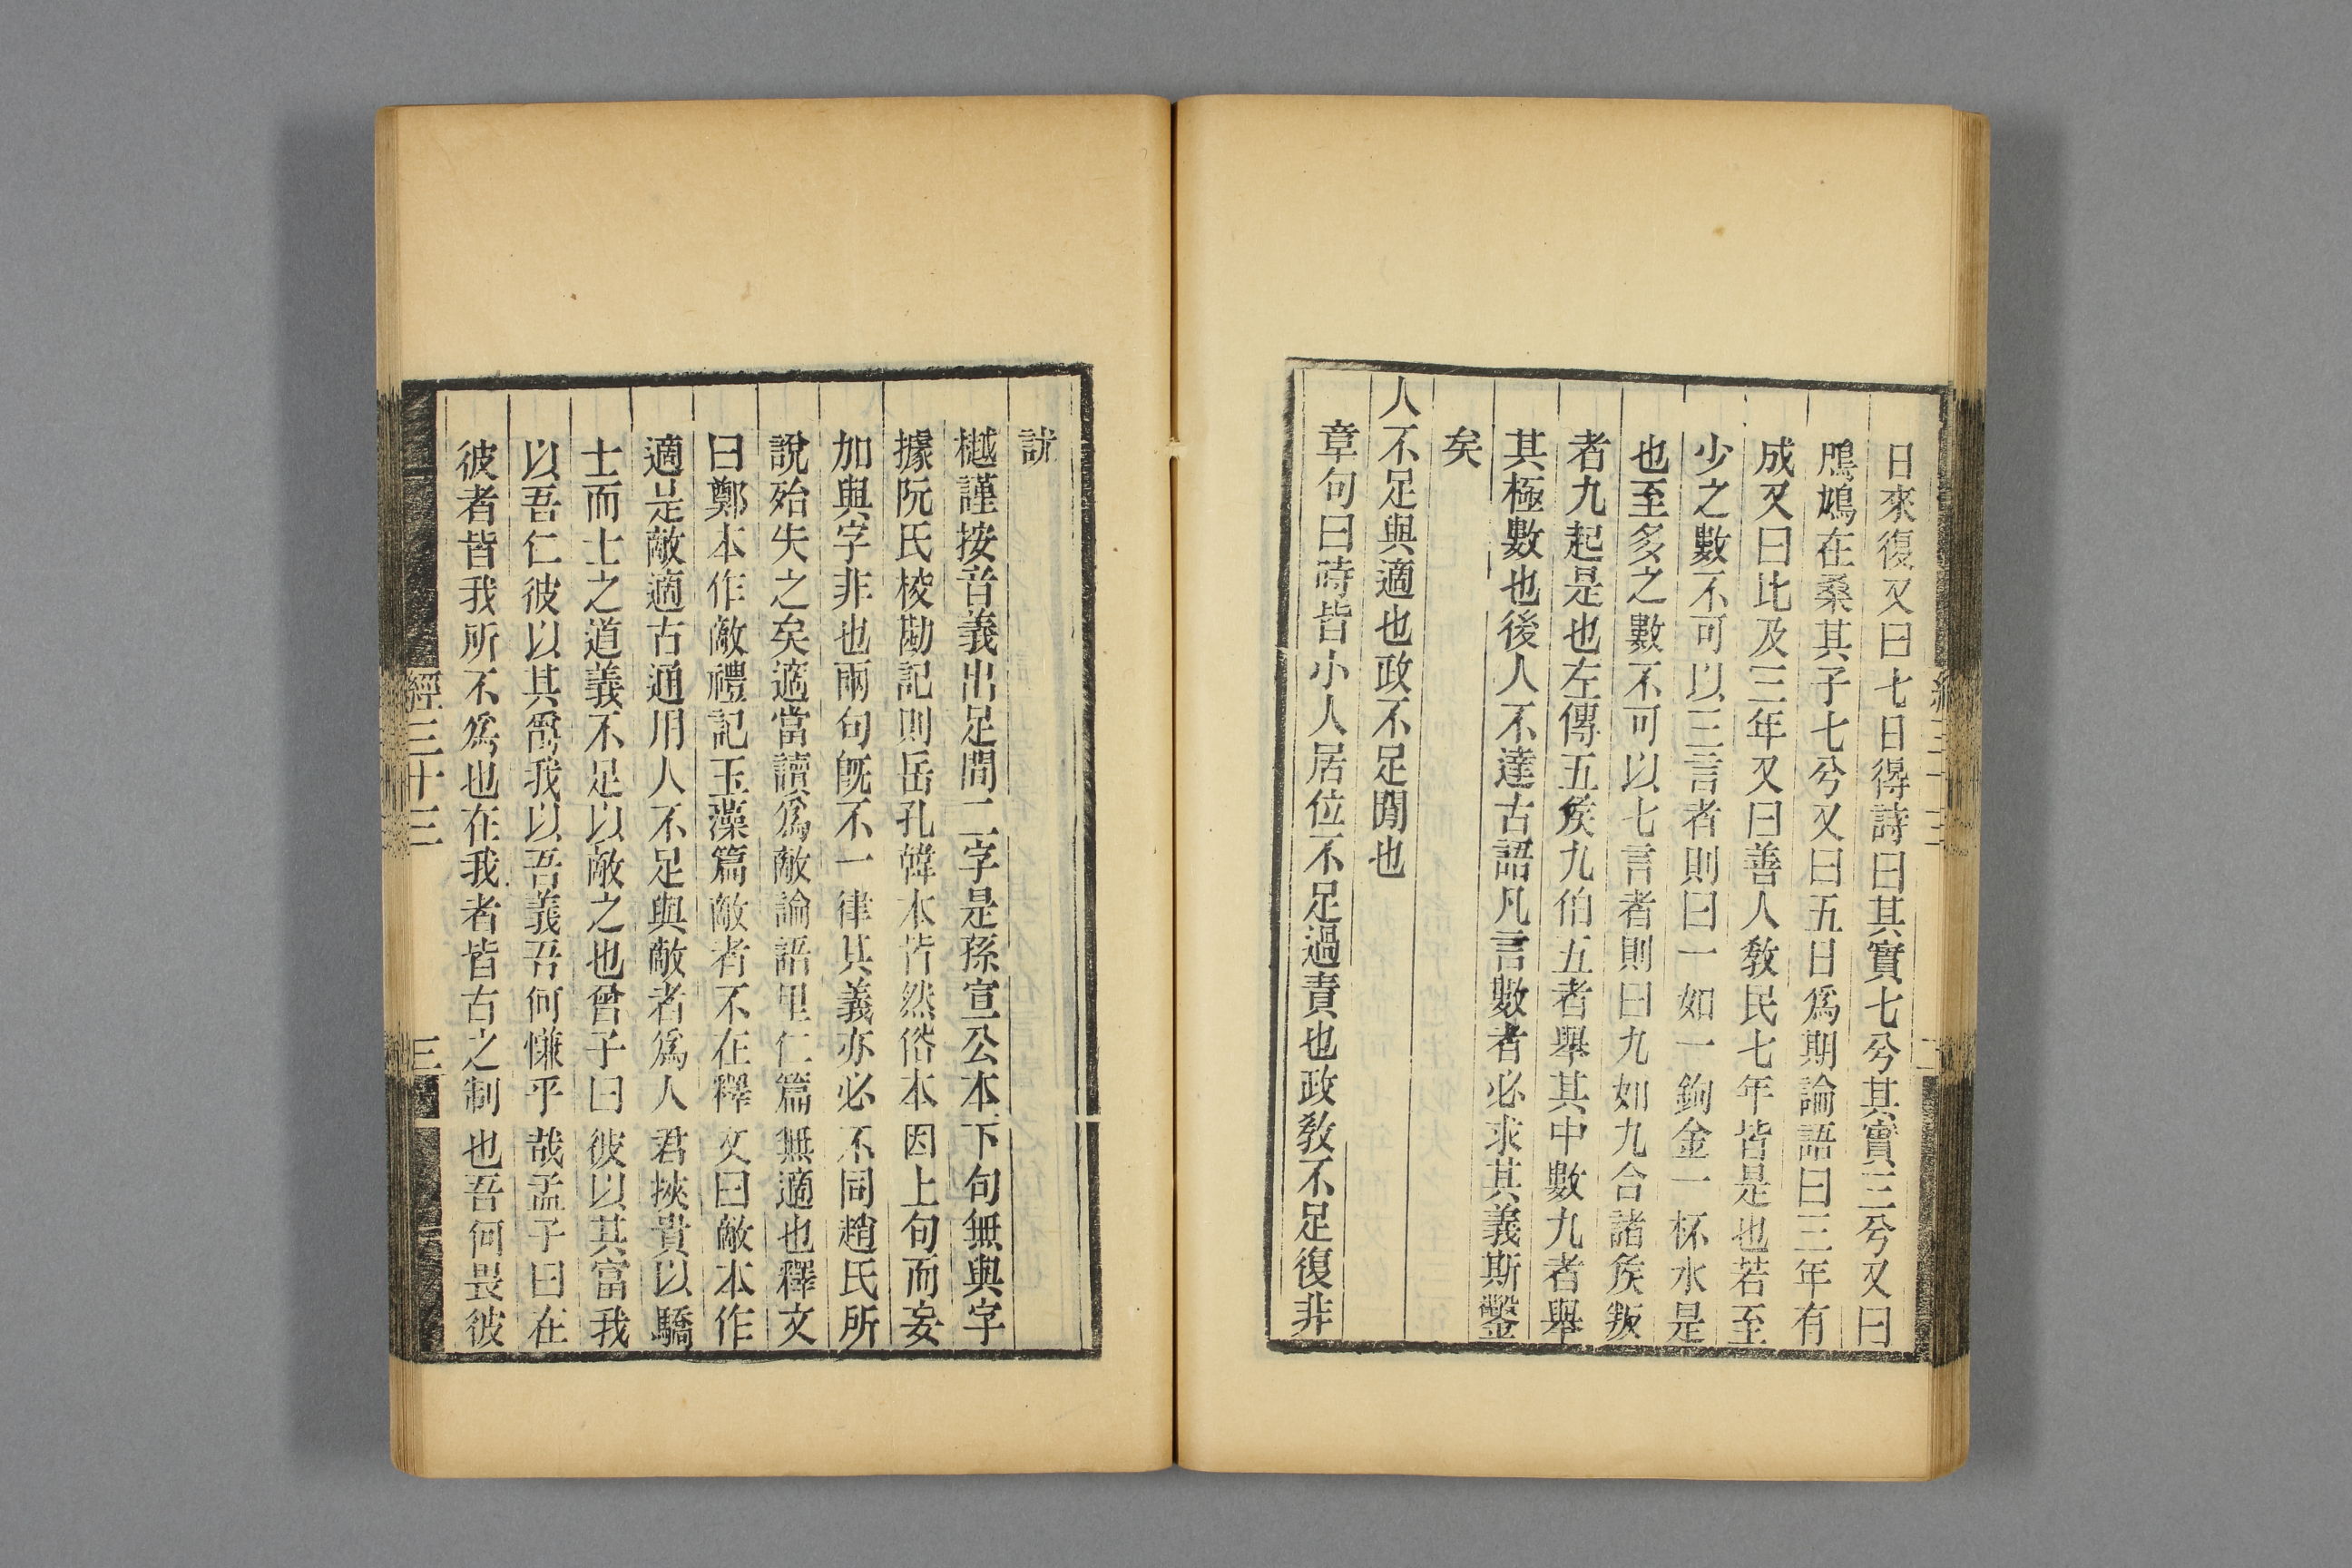 日來復又曰七日得詩曰其實七兮其實三兮又曰
鳲鳩在桑其子七兮又曰五日爲期論語曰三年有
成又曰比及三年又曰善人敎民七年皆是也若至
少之數不可以三言者則曰一如一鉤金一杯水是
也至多之數不可以七言者則曰九如九合諸矦叛
者九起是也左傳五矦九伯五者舉其中數九者舉
其極數也後人不達古語凡言數者必求其義斯鑿
矣
人不足與適也政不足閒也
章句曰時皆小人居位不足過責也政敎不足復非
說
樾謹按音義出足間二字是孫宣公本下句無與字
據阮氏校勘記則岳孔韓本皆然俗本因上句而妄
加與字非也兩句旣不一律其義亦必不同趙氏所
說殆失之矣適當讀爲敵論語里仁篇無適也釋文
曰鄭本作敵禮記玉藻篇敵者不在釋文曰敵本作
適是敵適古通用人不足與敵者爲人君挾貴以驕
士而士之道義不足以敵之也曾子曰彼以其富我
以吾仁彼以其爵我以吾義吾何慊乎哉孟子曰在
彼者皆我所不爲也在我者皆古之制也吾何畏彼
經三十三
三